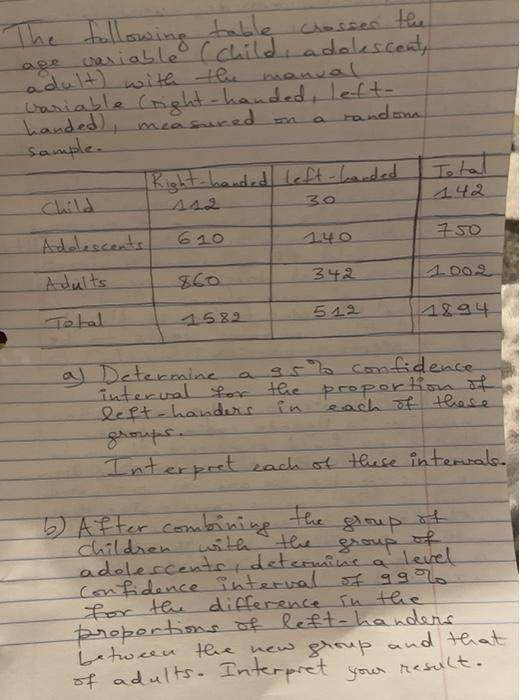 The following table crosses the
age variable (child, adolescent,
adult) with the manual
variable (right-handed, left-
handed), measured on a random
sample.
Right-handed left-handed Total
Child 112 30 142
Adolescents 610 140 750
Adults 860 342 1002
Total 1582 512 1894
a) Determine a 95% confidence
interval for the proportion of
left-handers in each of these
groups.
Interpret each of these intervals.
b) After combining the group of
children with the group of
adolescents, determine a level
confidence interval of 99%
for the difference in the
proportions of left-handers
between the new group and that
of adults. Interpret your result.